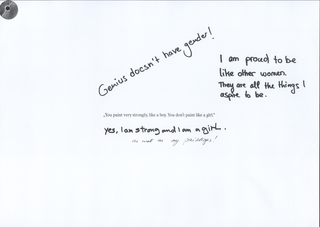 Genius doesn't have gender!
I am proud to be
like other women.
They are all the things I
aspire to be.
„You paint very strongly, like a boy. You don't paint like a girl."
yes, I am strong and I am a girl.
as well as my paintings!